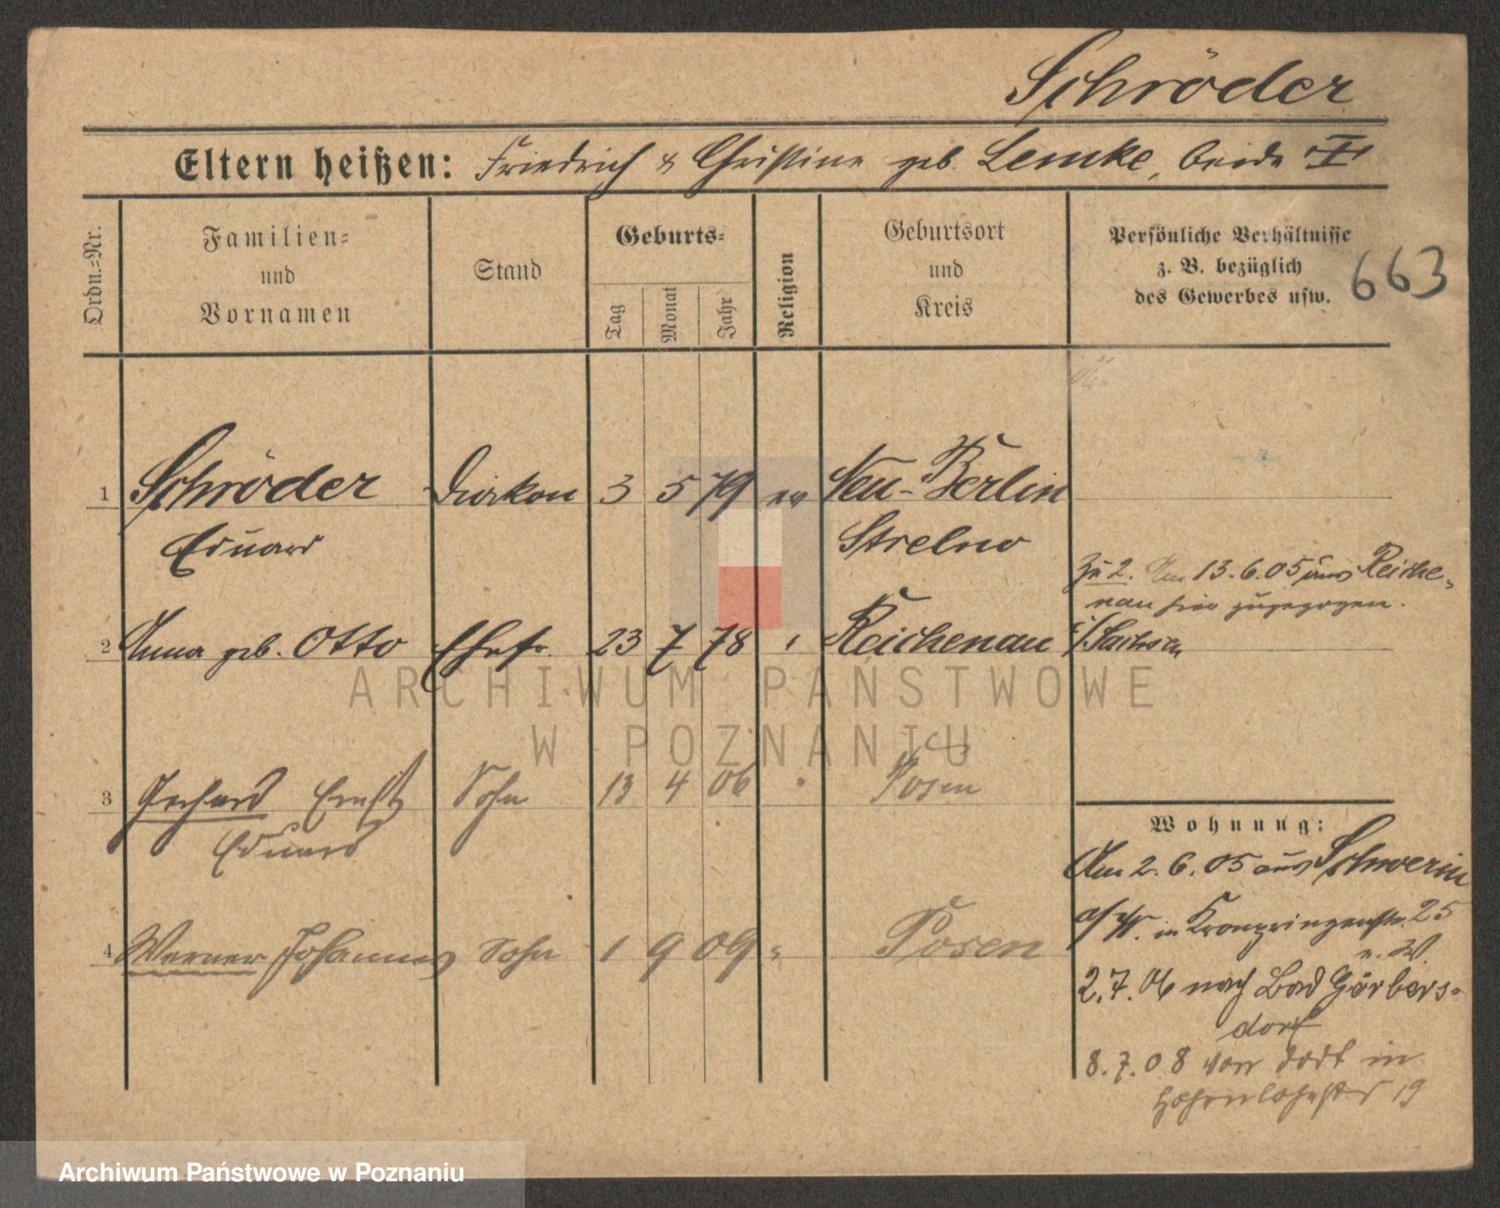 Schröder
Eltern heißen: Friedrich & Christine geb. Lemke, beide
Ordn.=Nr.
Familien=
und
Vornamen
Stand
Geburts=
Tag
Monat
Jahr
Religion
Geburtsort
und
Kreis
Persönliche Verhältnisse
z. B. bezüglich
des Gewerbes usw.
663
1 Schröder Diakon 3 5 79 ev Neu-Berlin
Eduard Strelno
Zu 2. Am 13.6.05 aus Reiche-
nau hier zugezogen.
2 Anna geb. Otto Ehefr. 23 7 78 " Reichenau i/Sachsen
3 Gerhard Ernst Sohn 13 4 06 " Posen
Eduard
4 Werner Johannes Sohn 1 9 09 " Posen
Wohnung:
Am 2.6.05 aus Schwerin
a/W. in Kronprinzenstr. 25
n. W.
2.7.06 nach Bad Görbers-
dorf
8.7.08 von dort in
Hohenlohestr 19
ARCHIWUM PAŃSTWOWE
W POZNANIU
Archiwum Państwowe w Poznaniu